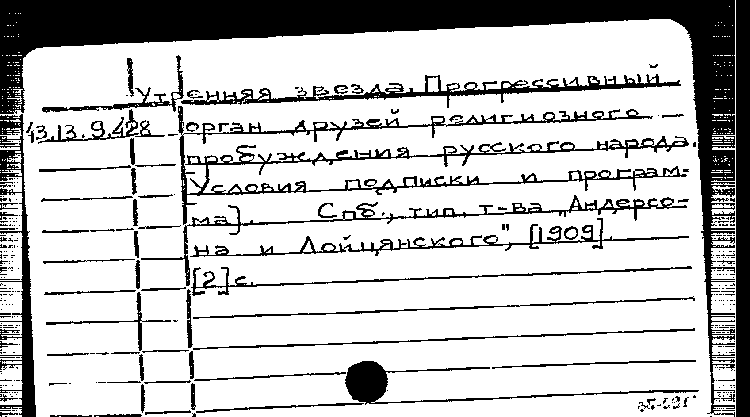 Утренняя звезда. Прогрессивный
13.13.9.428 орган друзей религиозного
пробуждения русского народа.
[Условия подписки и програм-
ма]. Спб., тип. т-ва „Андерсо-
на и Лойцянского", [1909].
[2] с.